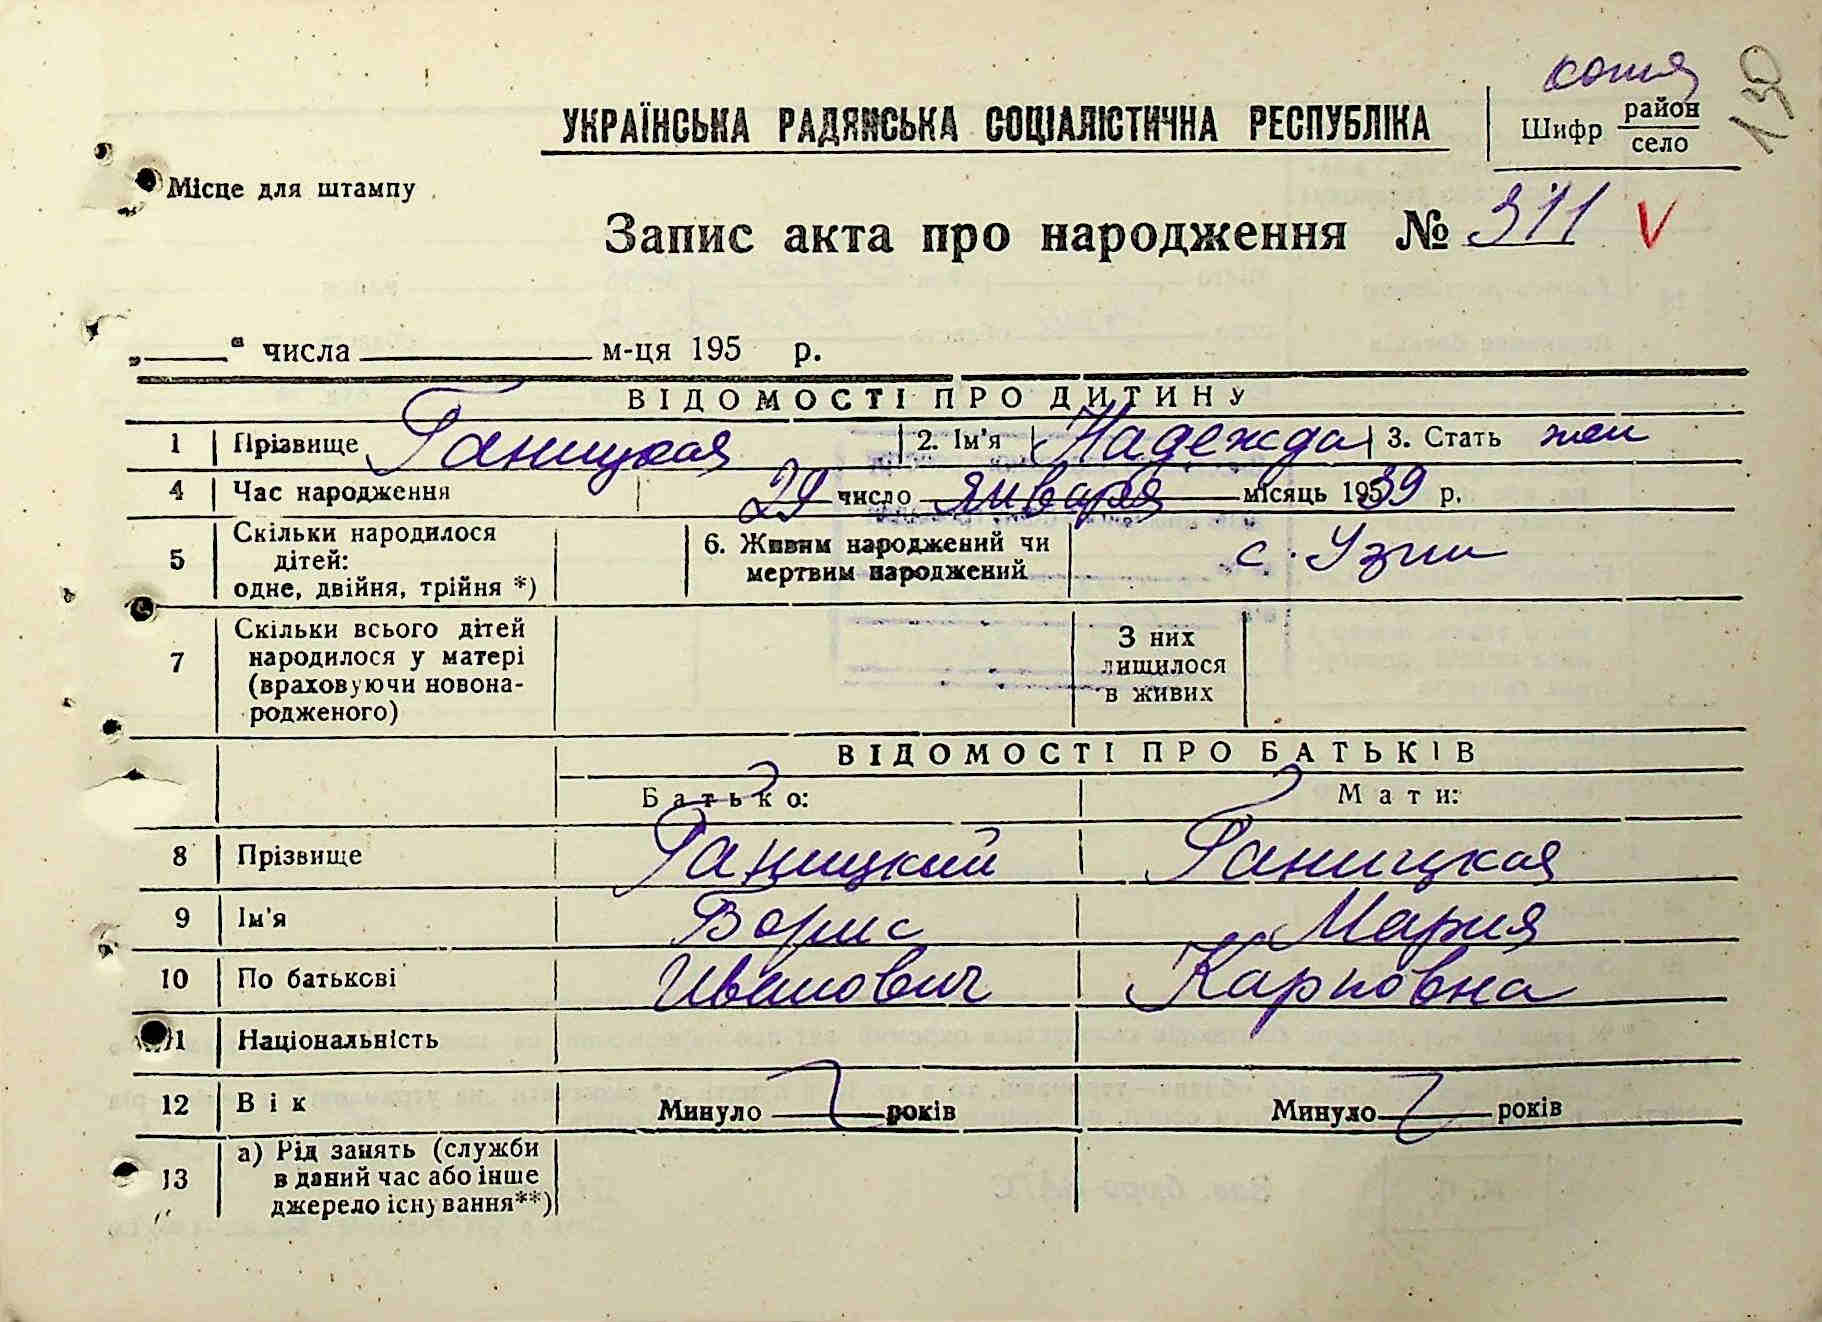 копия
УКРАЇНСЬКА РАДЯНСЬКА СОЦІАЛІСТИЧНА РЕСПУБЛІКА
Шифр район
село
130
Місце для штампу
Запис акта про народження № 311 V
„ “ числа м-ця 195 р.
ВІДОМОСТІ ПРО ДИТИНУ
1 Прізвище Ганицкая 2. Ім'я Надежда 3. Стать жен
4 Час народження 29 число января місяць 1939 р.
5 Скільки народилося дітей: одне, двійня, трійня *) 6. Живим народжений чи мертвим народжений с. Узин
7 Скільки всього дітей народилося у матері (враховуючи новонародженого) З них лишилося в живих
ВІДОМОСТІ ПРО БАТЬКІВ
Батько: Мати:
8 Прізвище Ганицкий Ганицкая
9 Ім'я Борис Мария
10 По батькові Иванович Карповна
11 Національність
12 Вік Минуло років Минуло років
13 а) Рід занять (служби в даний час або інше джерело існування**)